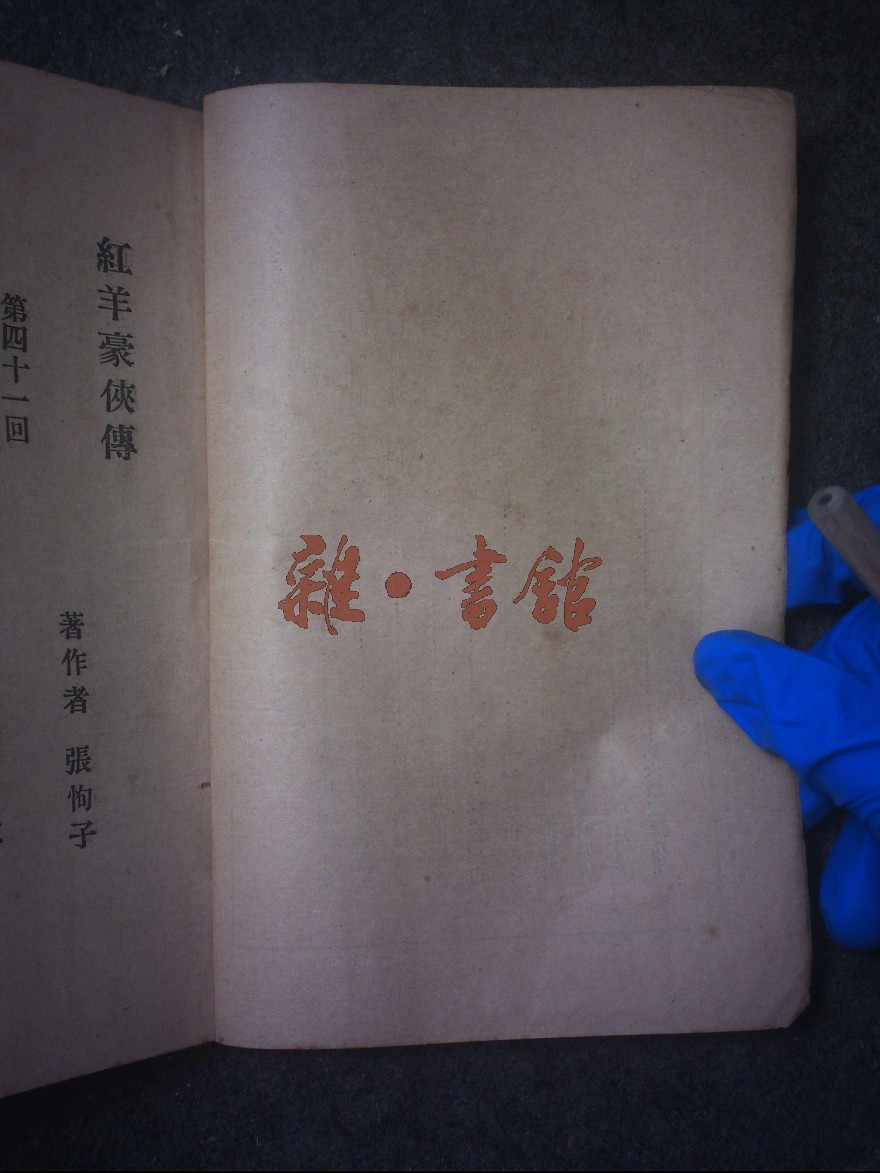 紅羊豪俠傳
著作者 張恂子
第四十一回
雜·書館